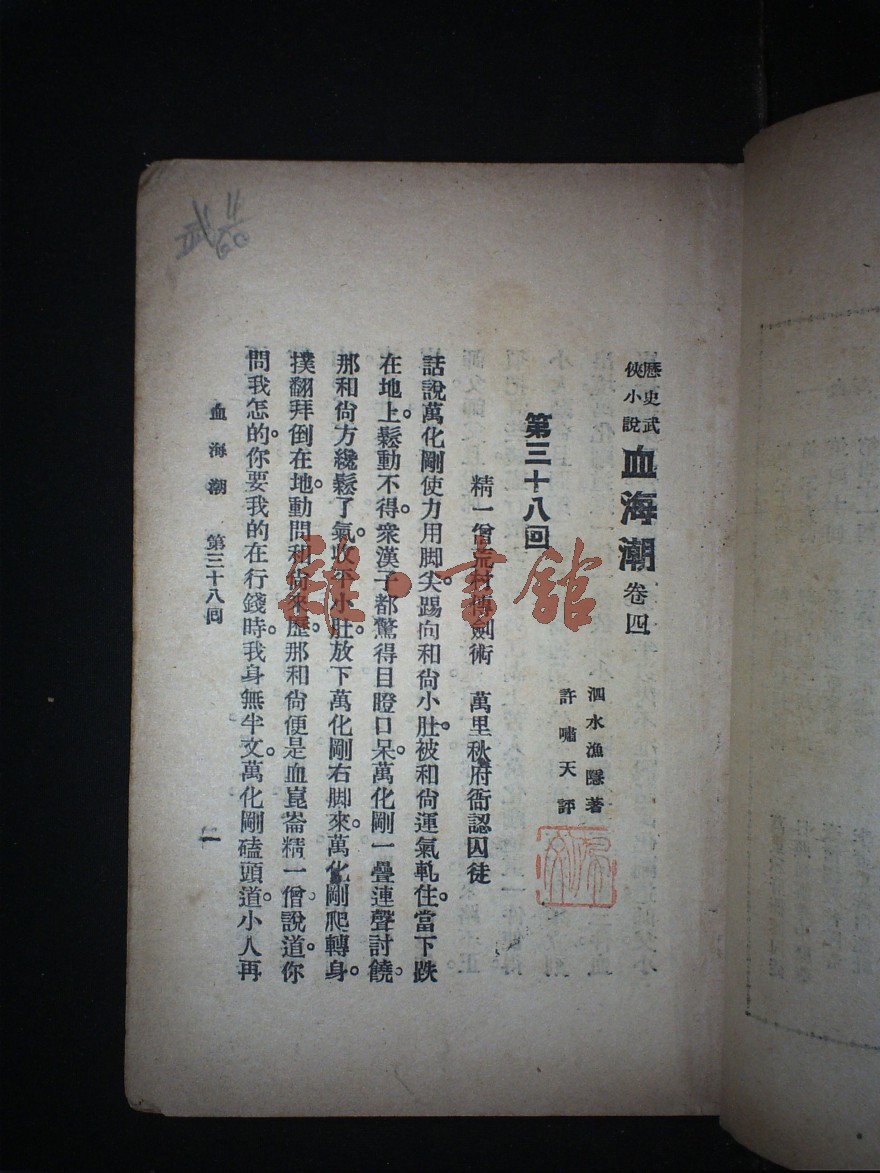 歷史武
俠小說
血海潮 卷四
泗水漁隱著
許嘯天評
第三十八回
精一僧荒村傳劍術 萬里秋府衙認囚徒
話說萬化剛使力用脚尖踢向和尙小肚。被和尙運氣軋住。當下跌
在地上。鬆動不得。衆漢子都驚得目瞪口呆。萬化剛一疊連聲討饒。
那和尙方纔鬆了氣。收平小肚。放下萬化剛右脚來。萬化剛爬轉身。
撲翻拜倒在地。動問和尙來歷。那和尙便是血崑崙精一僧。說道。你
問我怎的。你要我的在行錢時。我身無半文。萬化剛磕頭道。小人再
血海潮 第三十八回
一
武 11
60
雜·書館